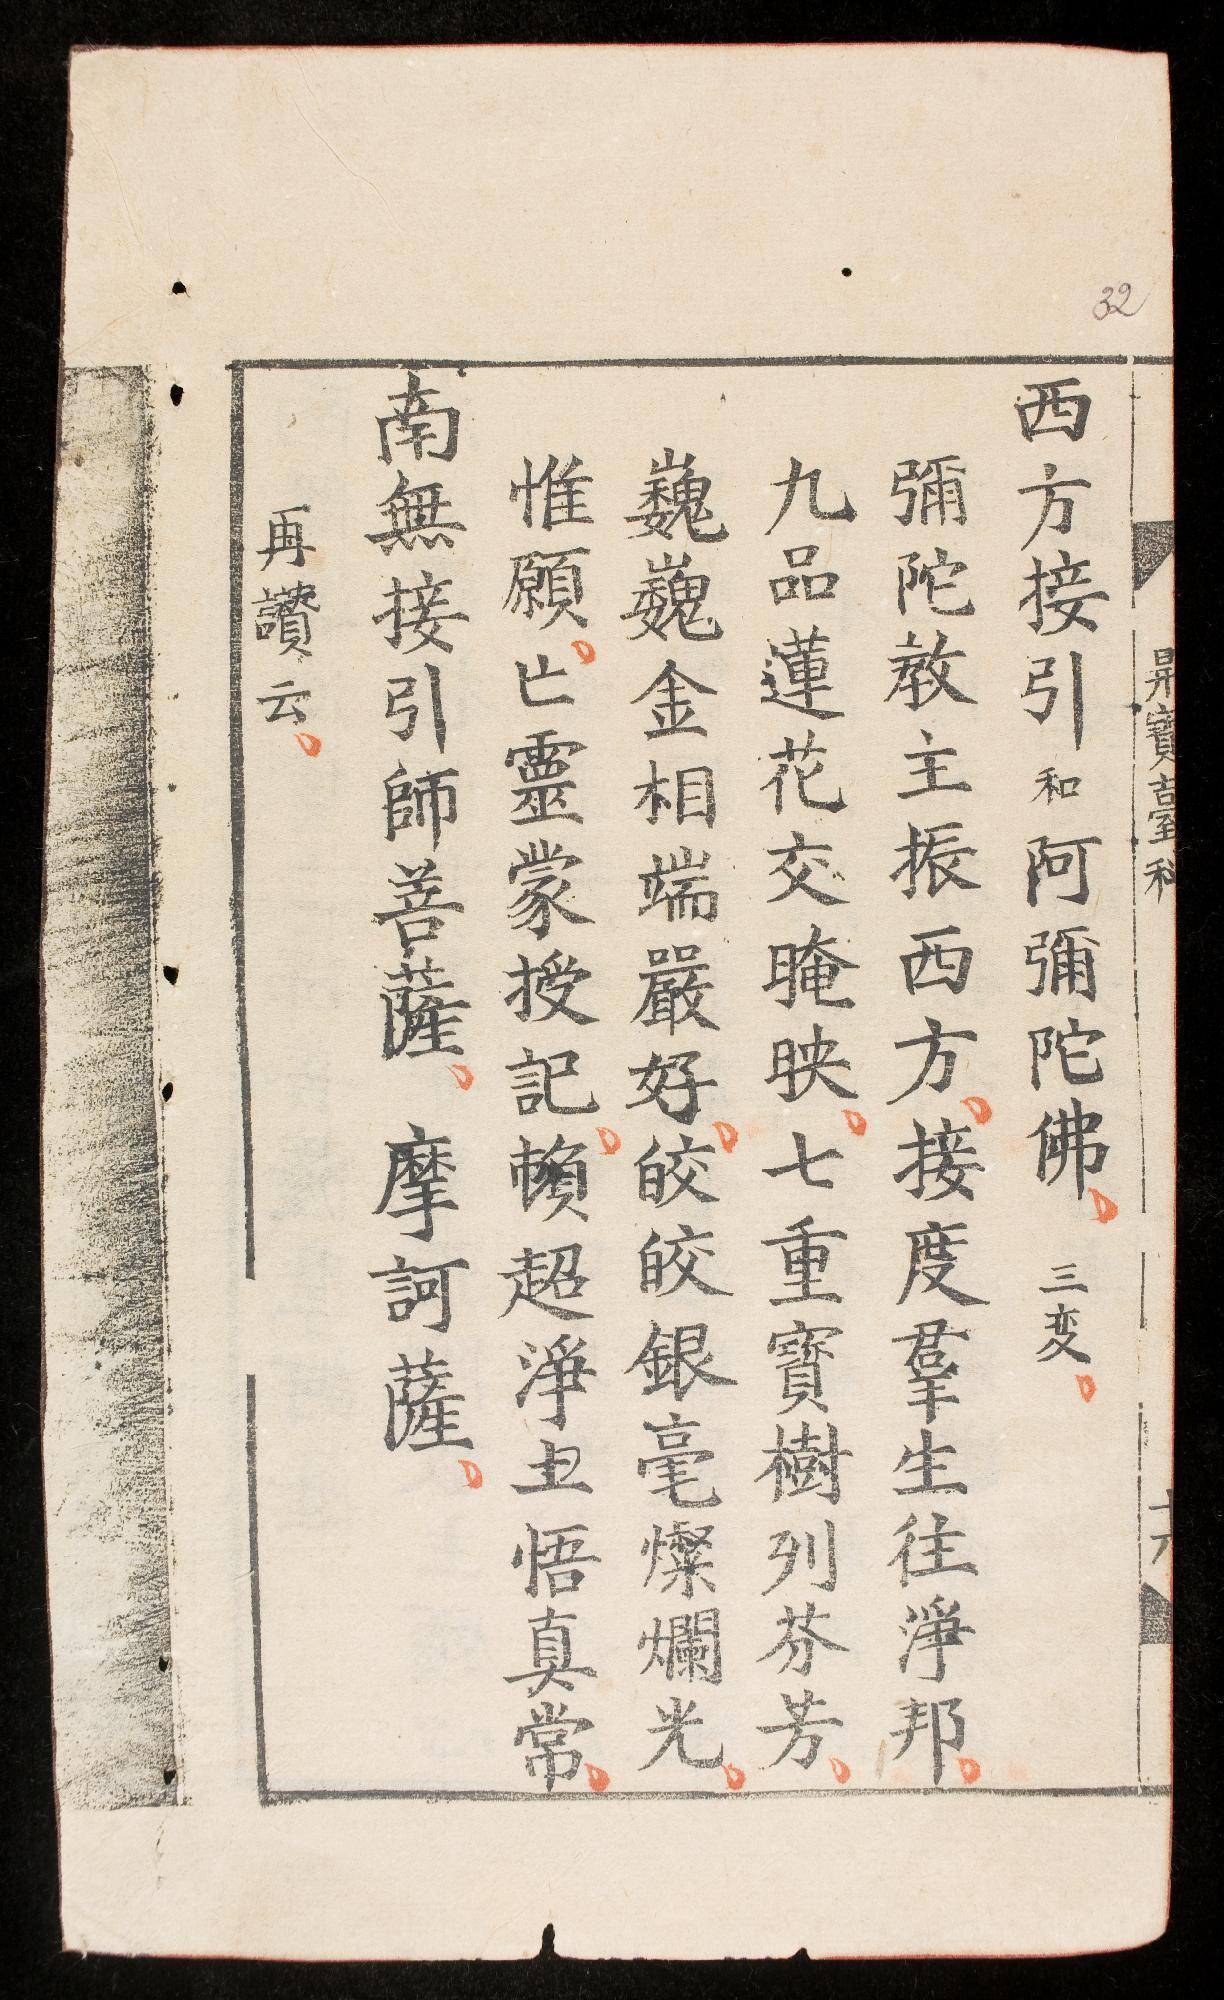 32
西方接引和阿彌陀佛、三变、
彌陀教主振西方、接度羣生往淨邦、
九品蓮花交晻映、七重寶樹列芬芳、
巍巍金相端嚴好、皎皎銀毫燦爛光、
惟願、亡靈蒙授記、賴超淨土悟真常、
南無接引師菩薩、摩訶薩、
再讚云、